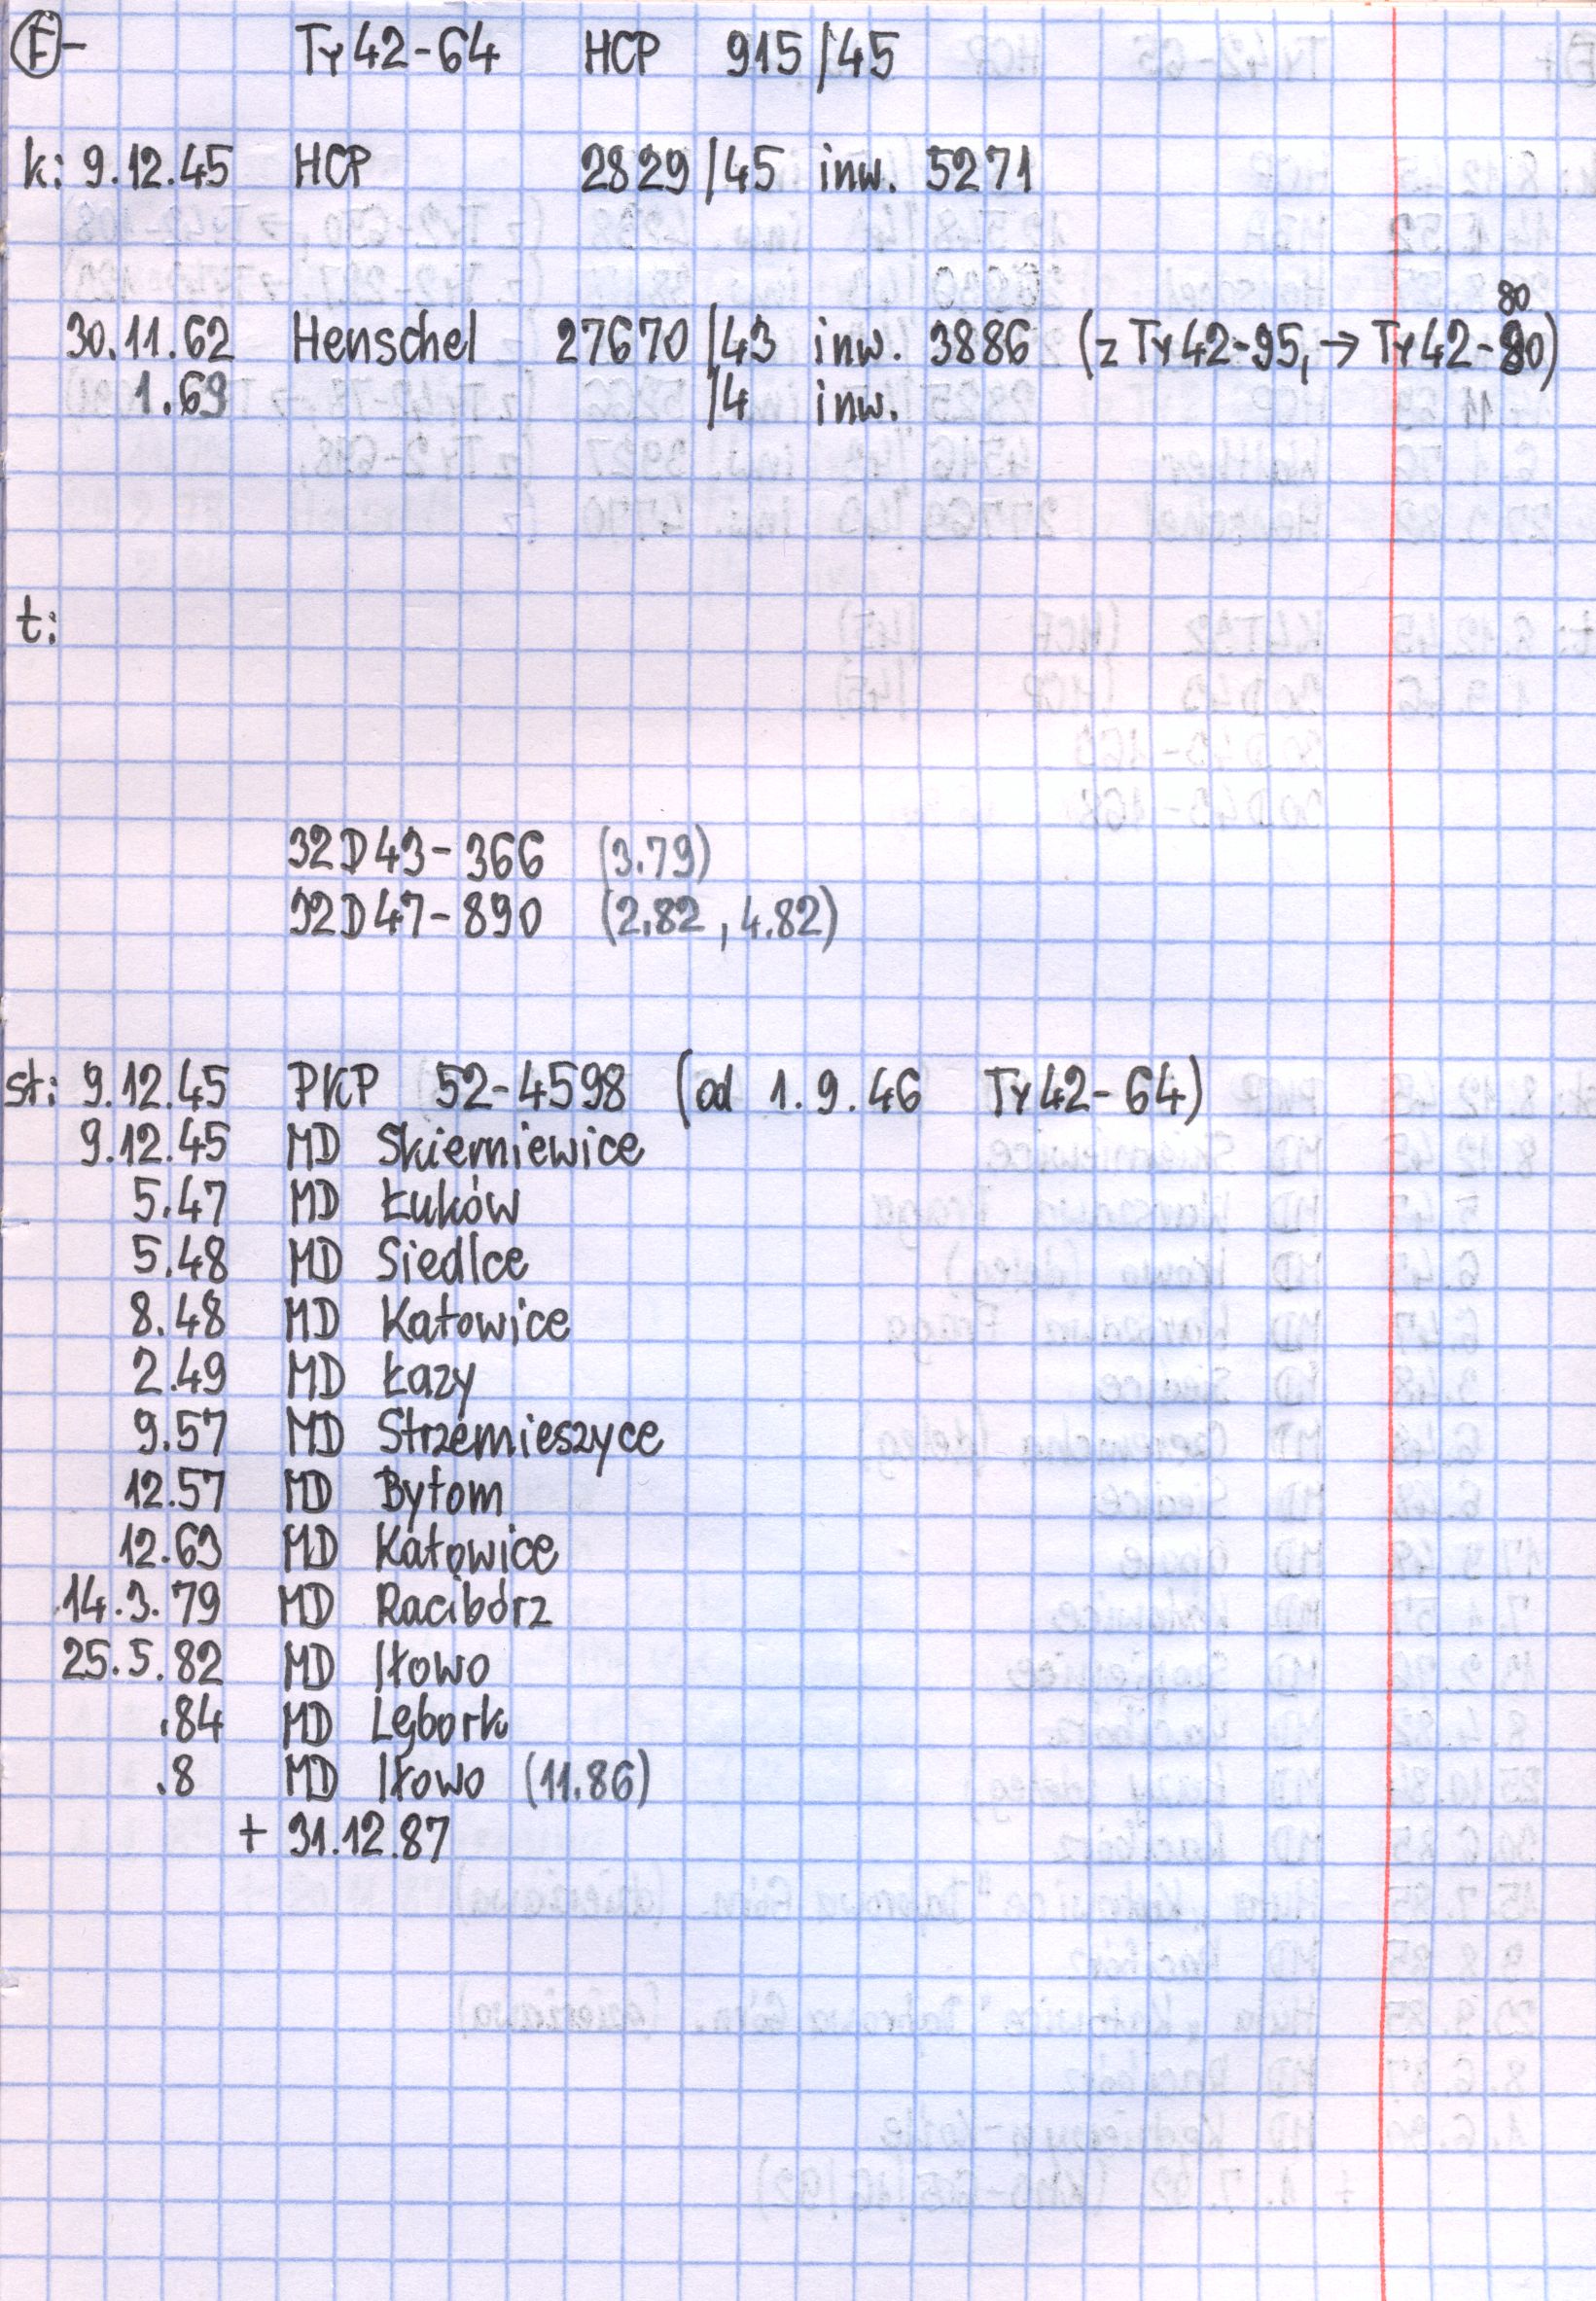 Ⓕ- Ty42-64 HCP 915/45
k: 9.12.45 HCP 2829/45 inw. 5271
80
30.11.62 Henschel 27670/43 inw. 3886 (z Ty42-95, → Ty42-80)
1.69 /4 inw.
t:
32D43-366 (3.79)
32D47-890 (2.82, 4.82)
st: 9.12.45 PKP 52-4598 (od 1.9.46 Ty42-64)
9.12.45 MD Skierniewice
5.47 MD Łuków
5.48 MD Siedlce
8.48 MD Katowice
2.49 MD Łazy
9.57 MD Strzemieszyce
12.57 MD Bytom
12.63 MD Katowice
14.3.79 MD Racibórz
25.5.82 MD Iłowo
.84 MD Lębork
.8 MD Iłowo (11.86)
+ 31.12.87